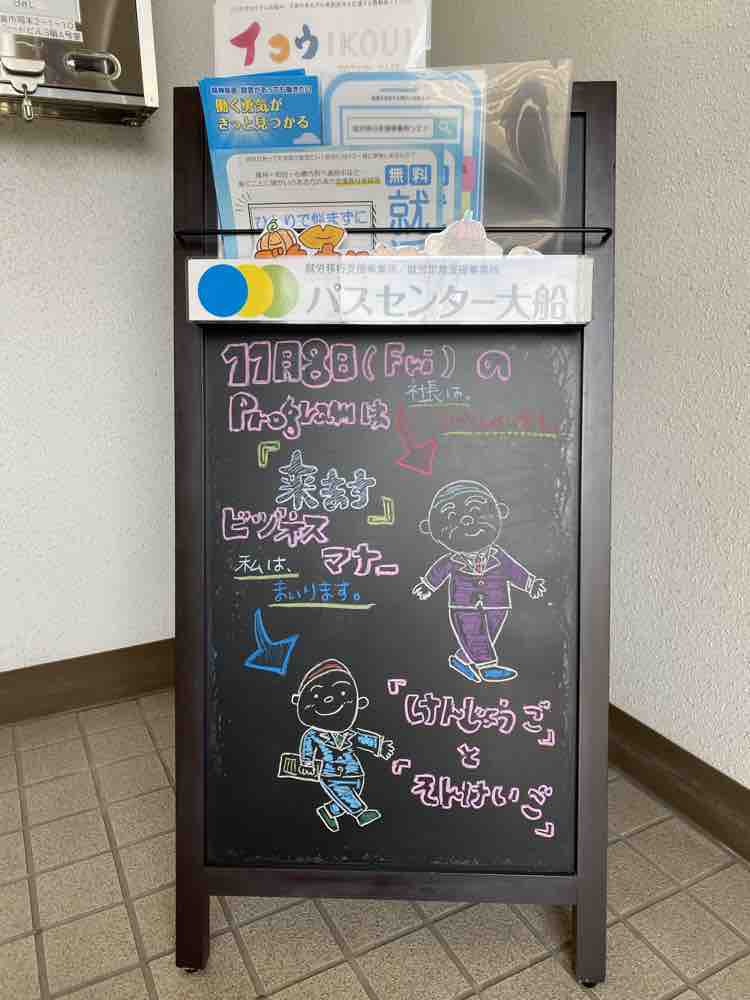 鎌倉市岡本2-1-10
イコウ IKOUI
働く勇気が
きっと見つかる
無料
就
ひとりで悩まずに
就労移行支援事業所／就労定着支援事業所
パスセンター大船
11月8日(Fri)の
Programは
社長は。
『来ます』
ビジネス
マナー
私は、
まいります。
「けんじょうご」
と
「そんけいご」